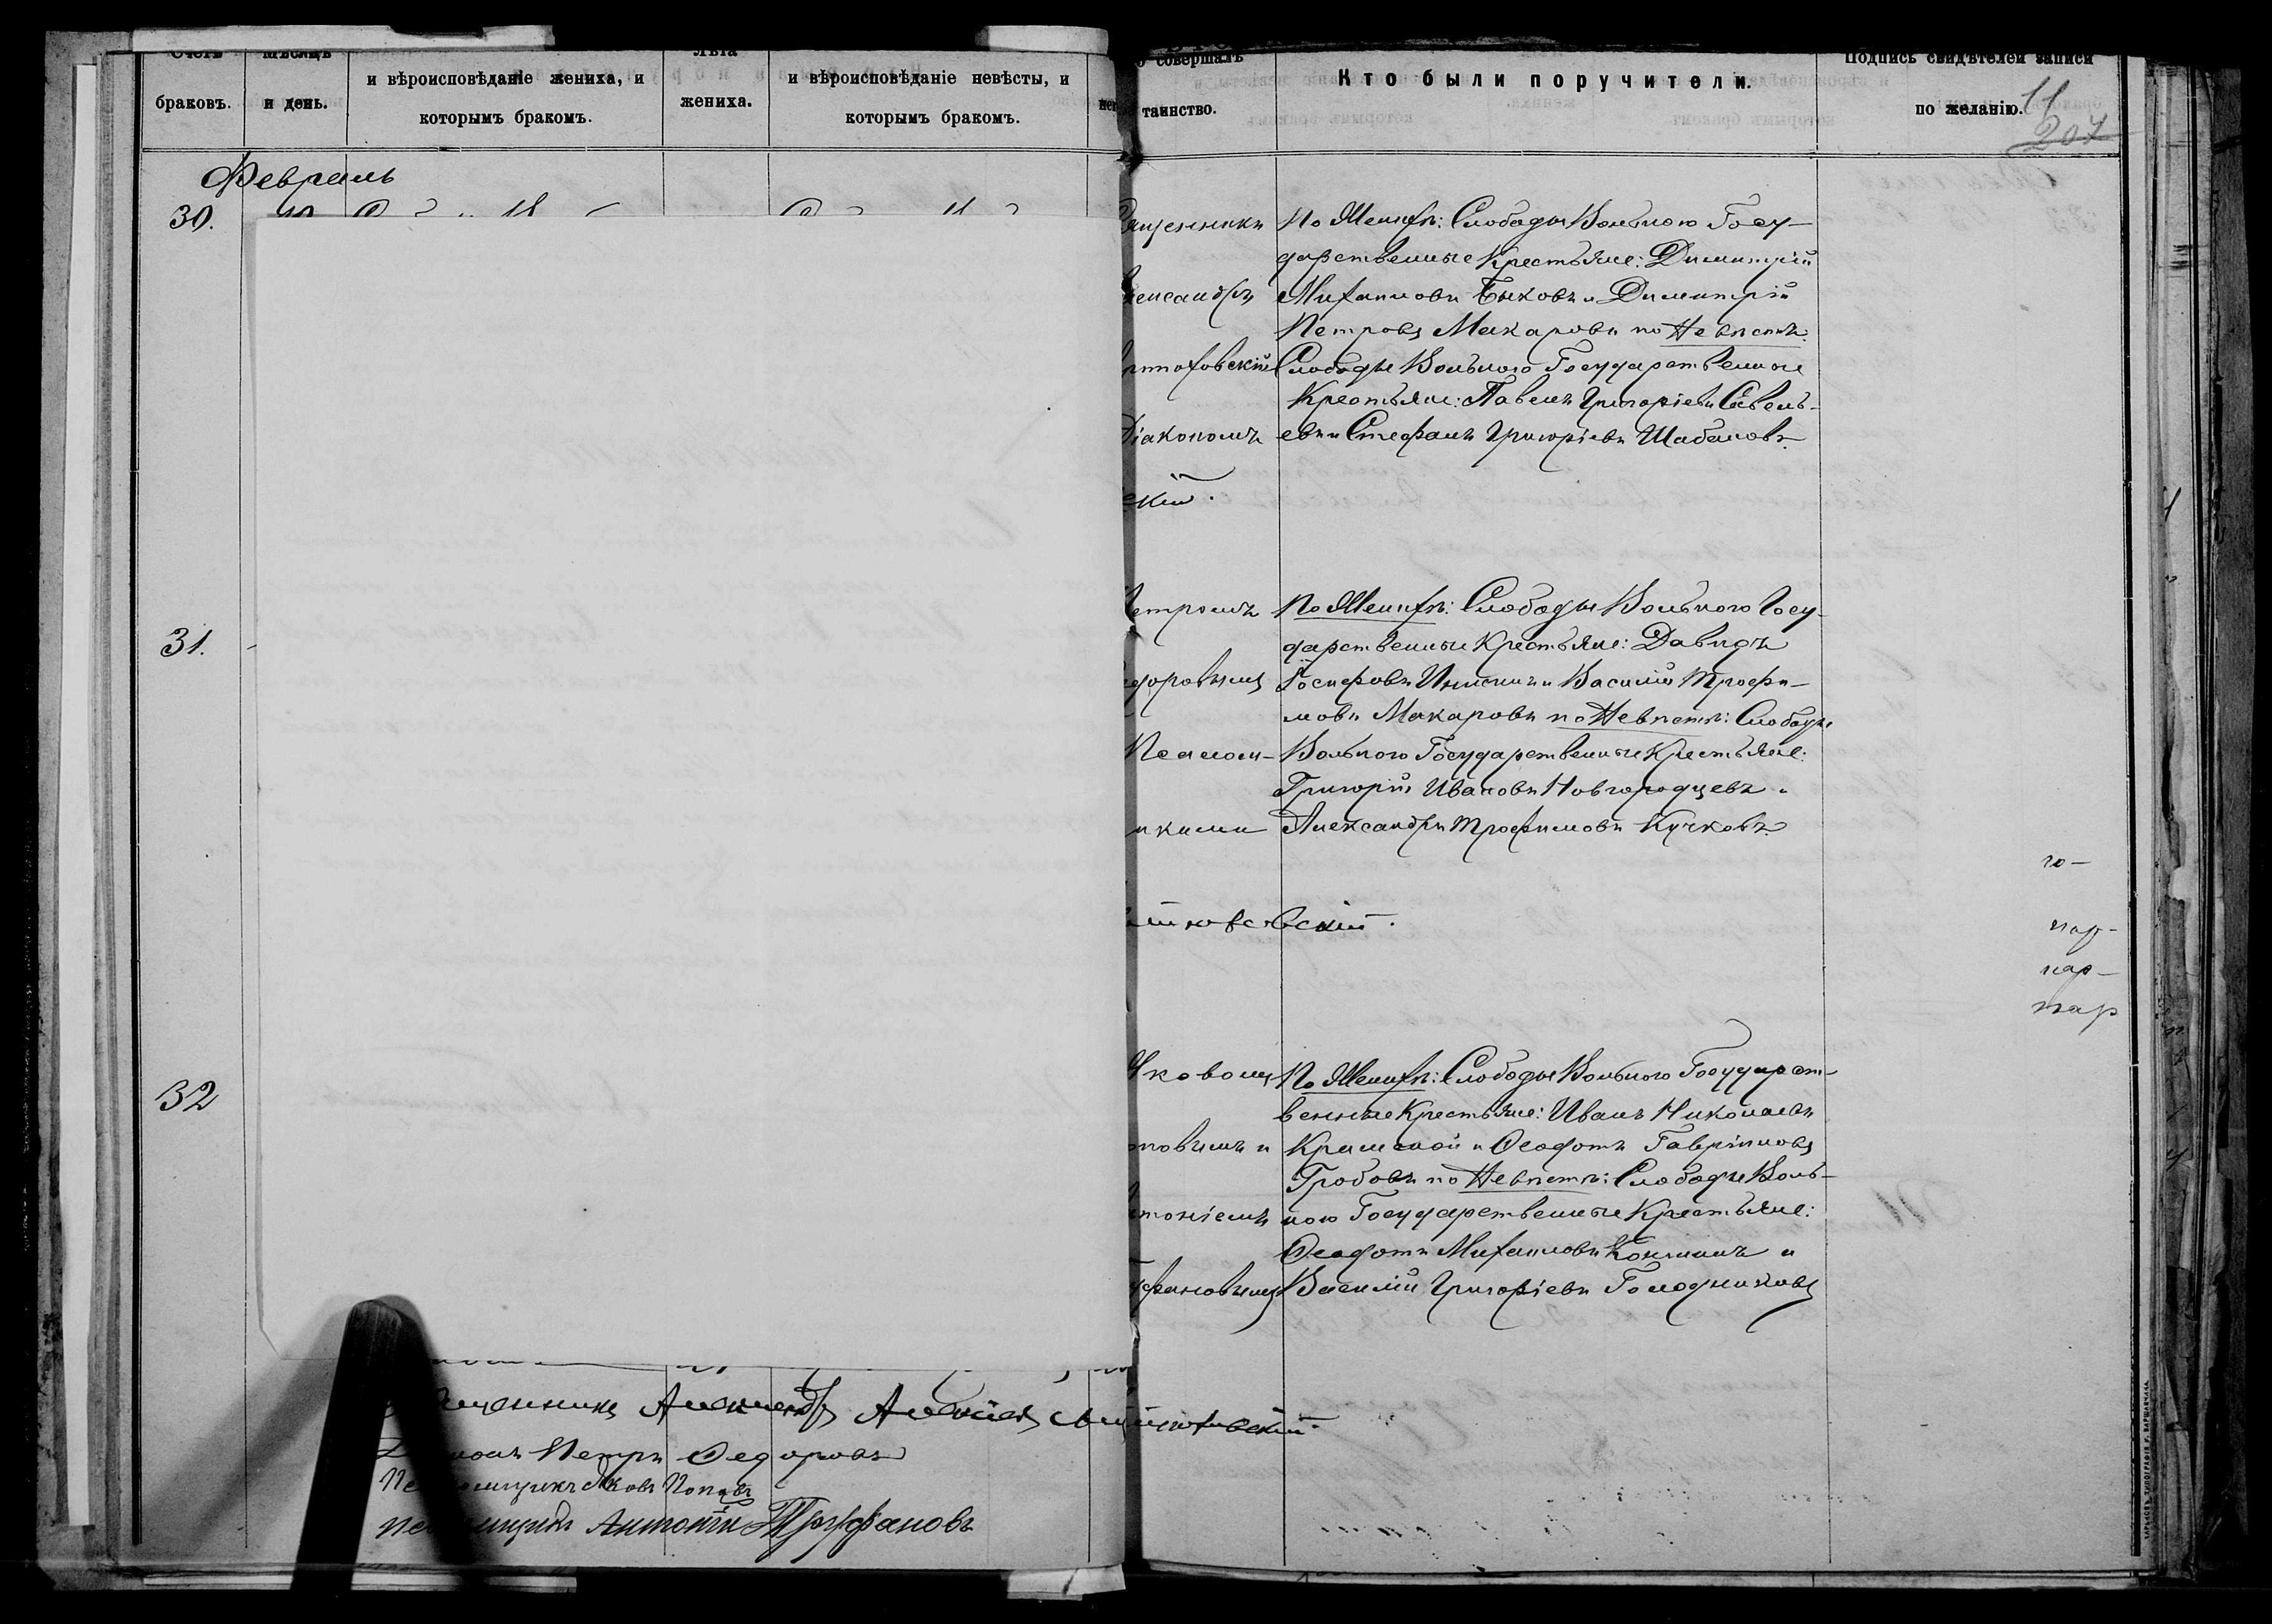 Счетъ
Мѣсяцъ
Лѣта
браковъ.
и день.
и вѣроисповѣданіе жениха, и
которымъ бракомъ.
жениха.
и вѣроисповѣданіе невѣсты, и
которымъ бракомъ.
совершалъ
таинство.
Кто были поручители.
Подпись свидѣтелей записи
по желанію.
11
207
Февраль
30.
31.
32
Священникъ
Александръ
Діакономъ
скій.
Петромъ
Псалом-
щиками
По Женихѣ: Слободы Вольного Госу-
дарственные Крестьяне: Димитрій
Михаиловъ Быковъ и Димитрій
Петровъ Макаровъ по Невѣстѣ:
Слободы Вольного Государственные
Крестьяне: Павелъ Григоріевъ Савель-
евъ и Стефанъ Григоріевъ Шабановъ.
По Женихѣ: Слободы Вольного Госу-
дарственные Крестьяне: Давидъ
Іосифовъ и Василій Трофи-
мовъ Макаровъ по Невѣстѣ: Слободы
Вольного Государственные Крестьяне:
Григорій Ивановъ Новгородцевъ и
Александръ Трофимовъ Кучковъ.
го-
пар-
пар-
пар
Яковомъ
Антоніемъ
По Женихѣ: Слободы Вольного Государст-
венные Крестьяне: Иванъ Николаевъ
и Ѳеодотъ Гавріиловъ
Гробовъ по Невѣстѣ: Слободы Воль-
ного Государственные Крестьяне:
Ѳеодотъ Михаиловъ Коншинъ и
Василій Григоріевъ Голодниковъ
Священникъ Александръ
Діаконъ Петръ Ѳедоровъ
Псаломщикъ Яковъ Поповъ
Псаломщикъ Антоній Труфановъ